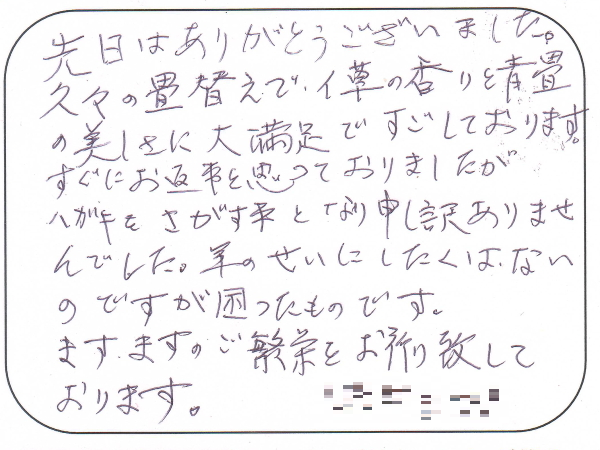 先日はありがとうございました。
久々の畳替えで、イ草の香りと青畳
の美しさに大満足ですごしております。
すぐにお返事を思っておりましたが
ハガキをさがす事となり申し訳ありませ
んでした。年のせいにしたくはない
のですが困ったものです。
ます、ますのご繁栄をお祈り致して
おります。